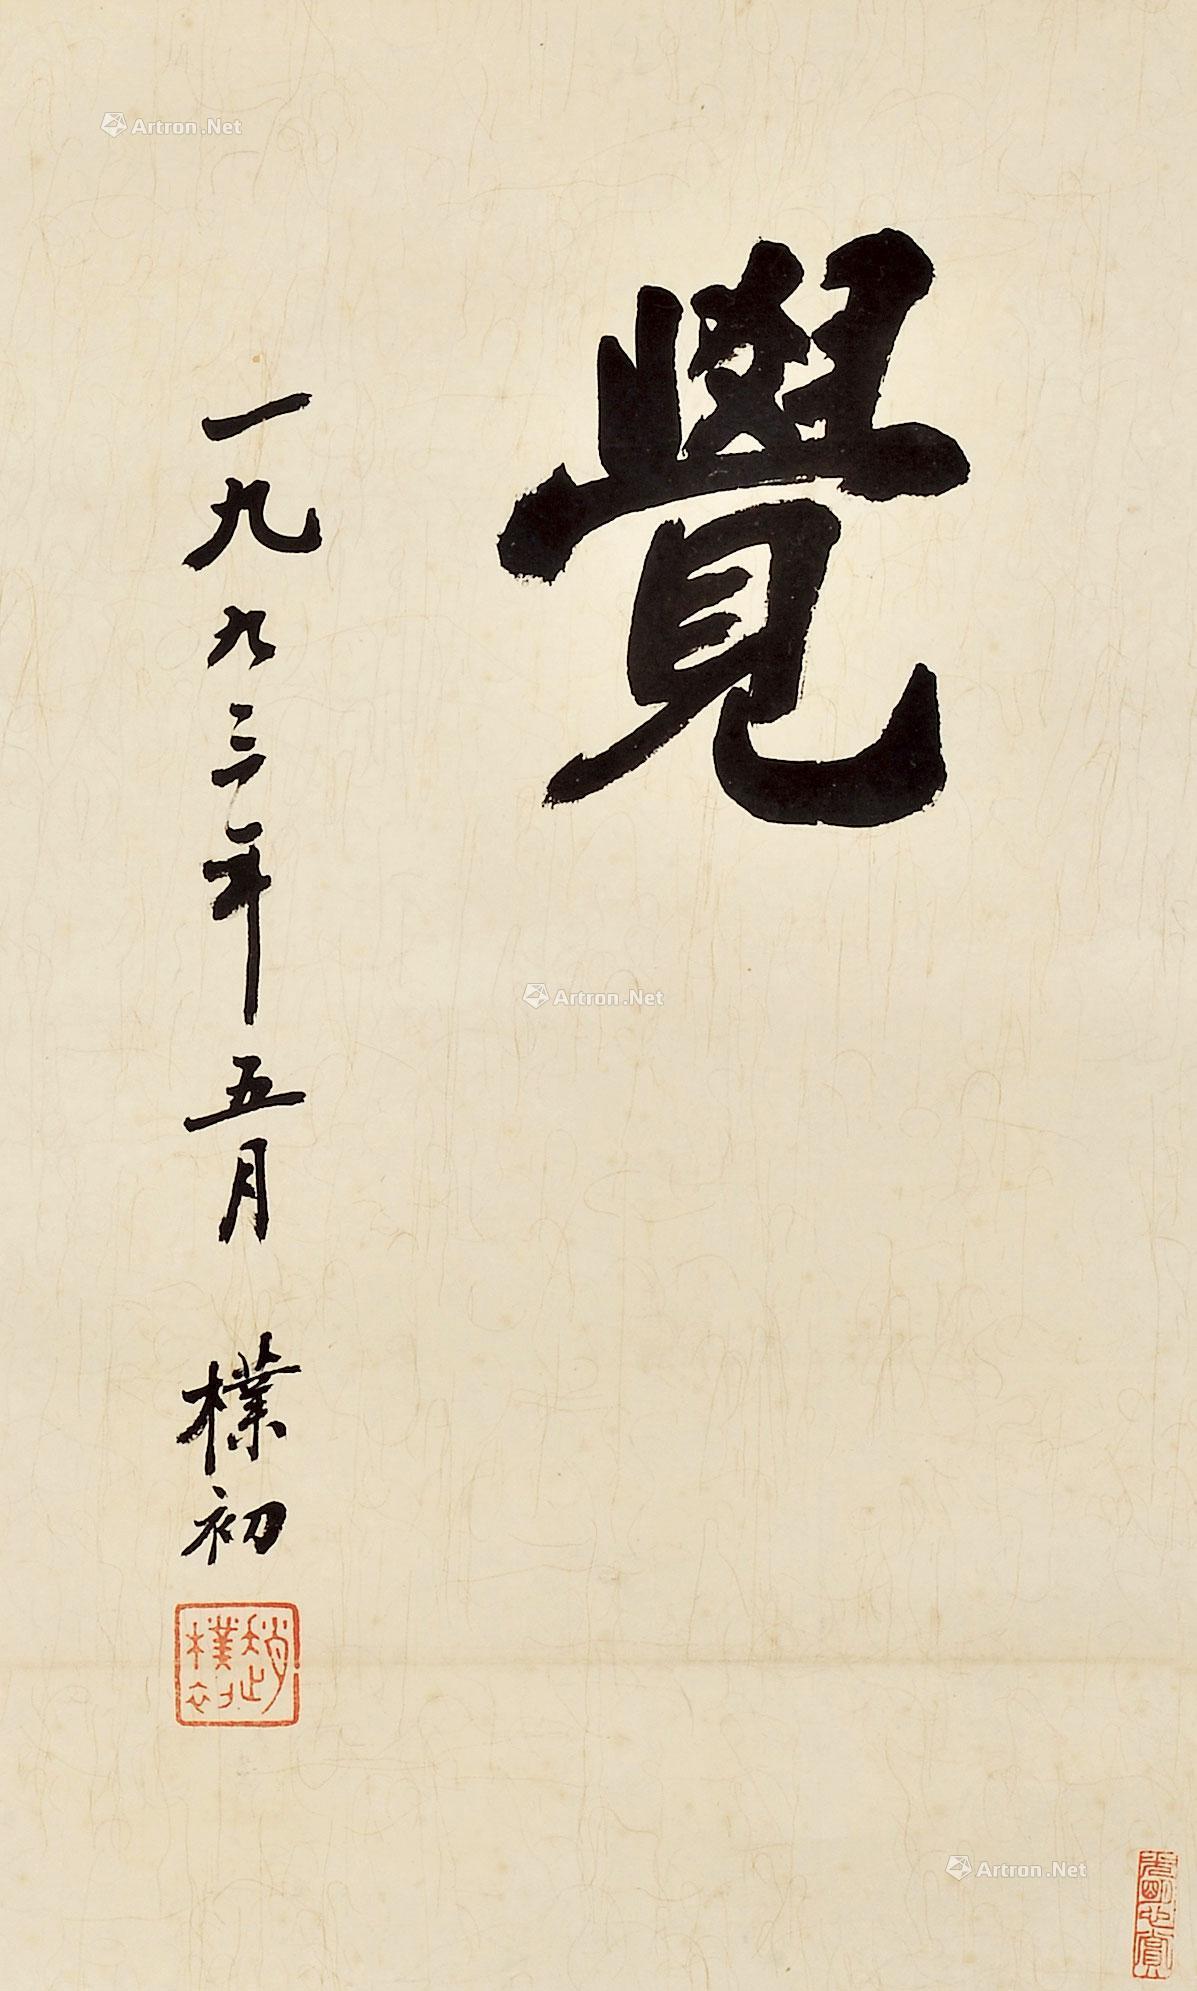 覺
一九九三年五月 樸初
趙樸初
Artron.Net
Artron.Net
Artron.Net